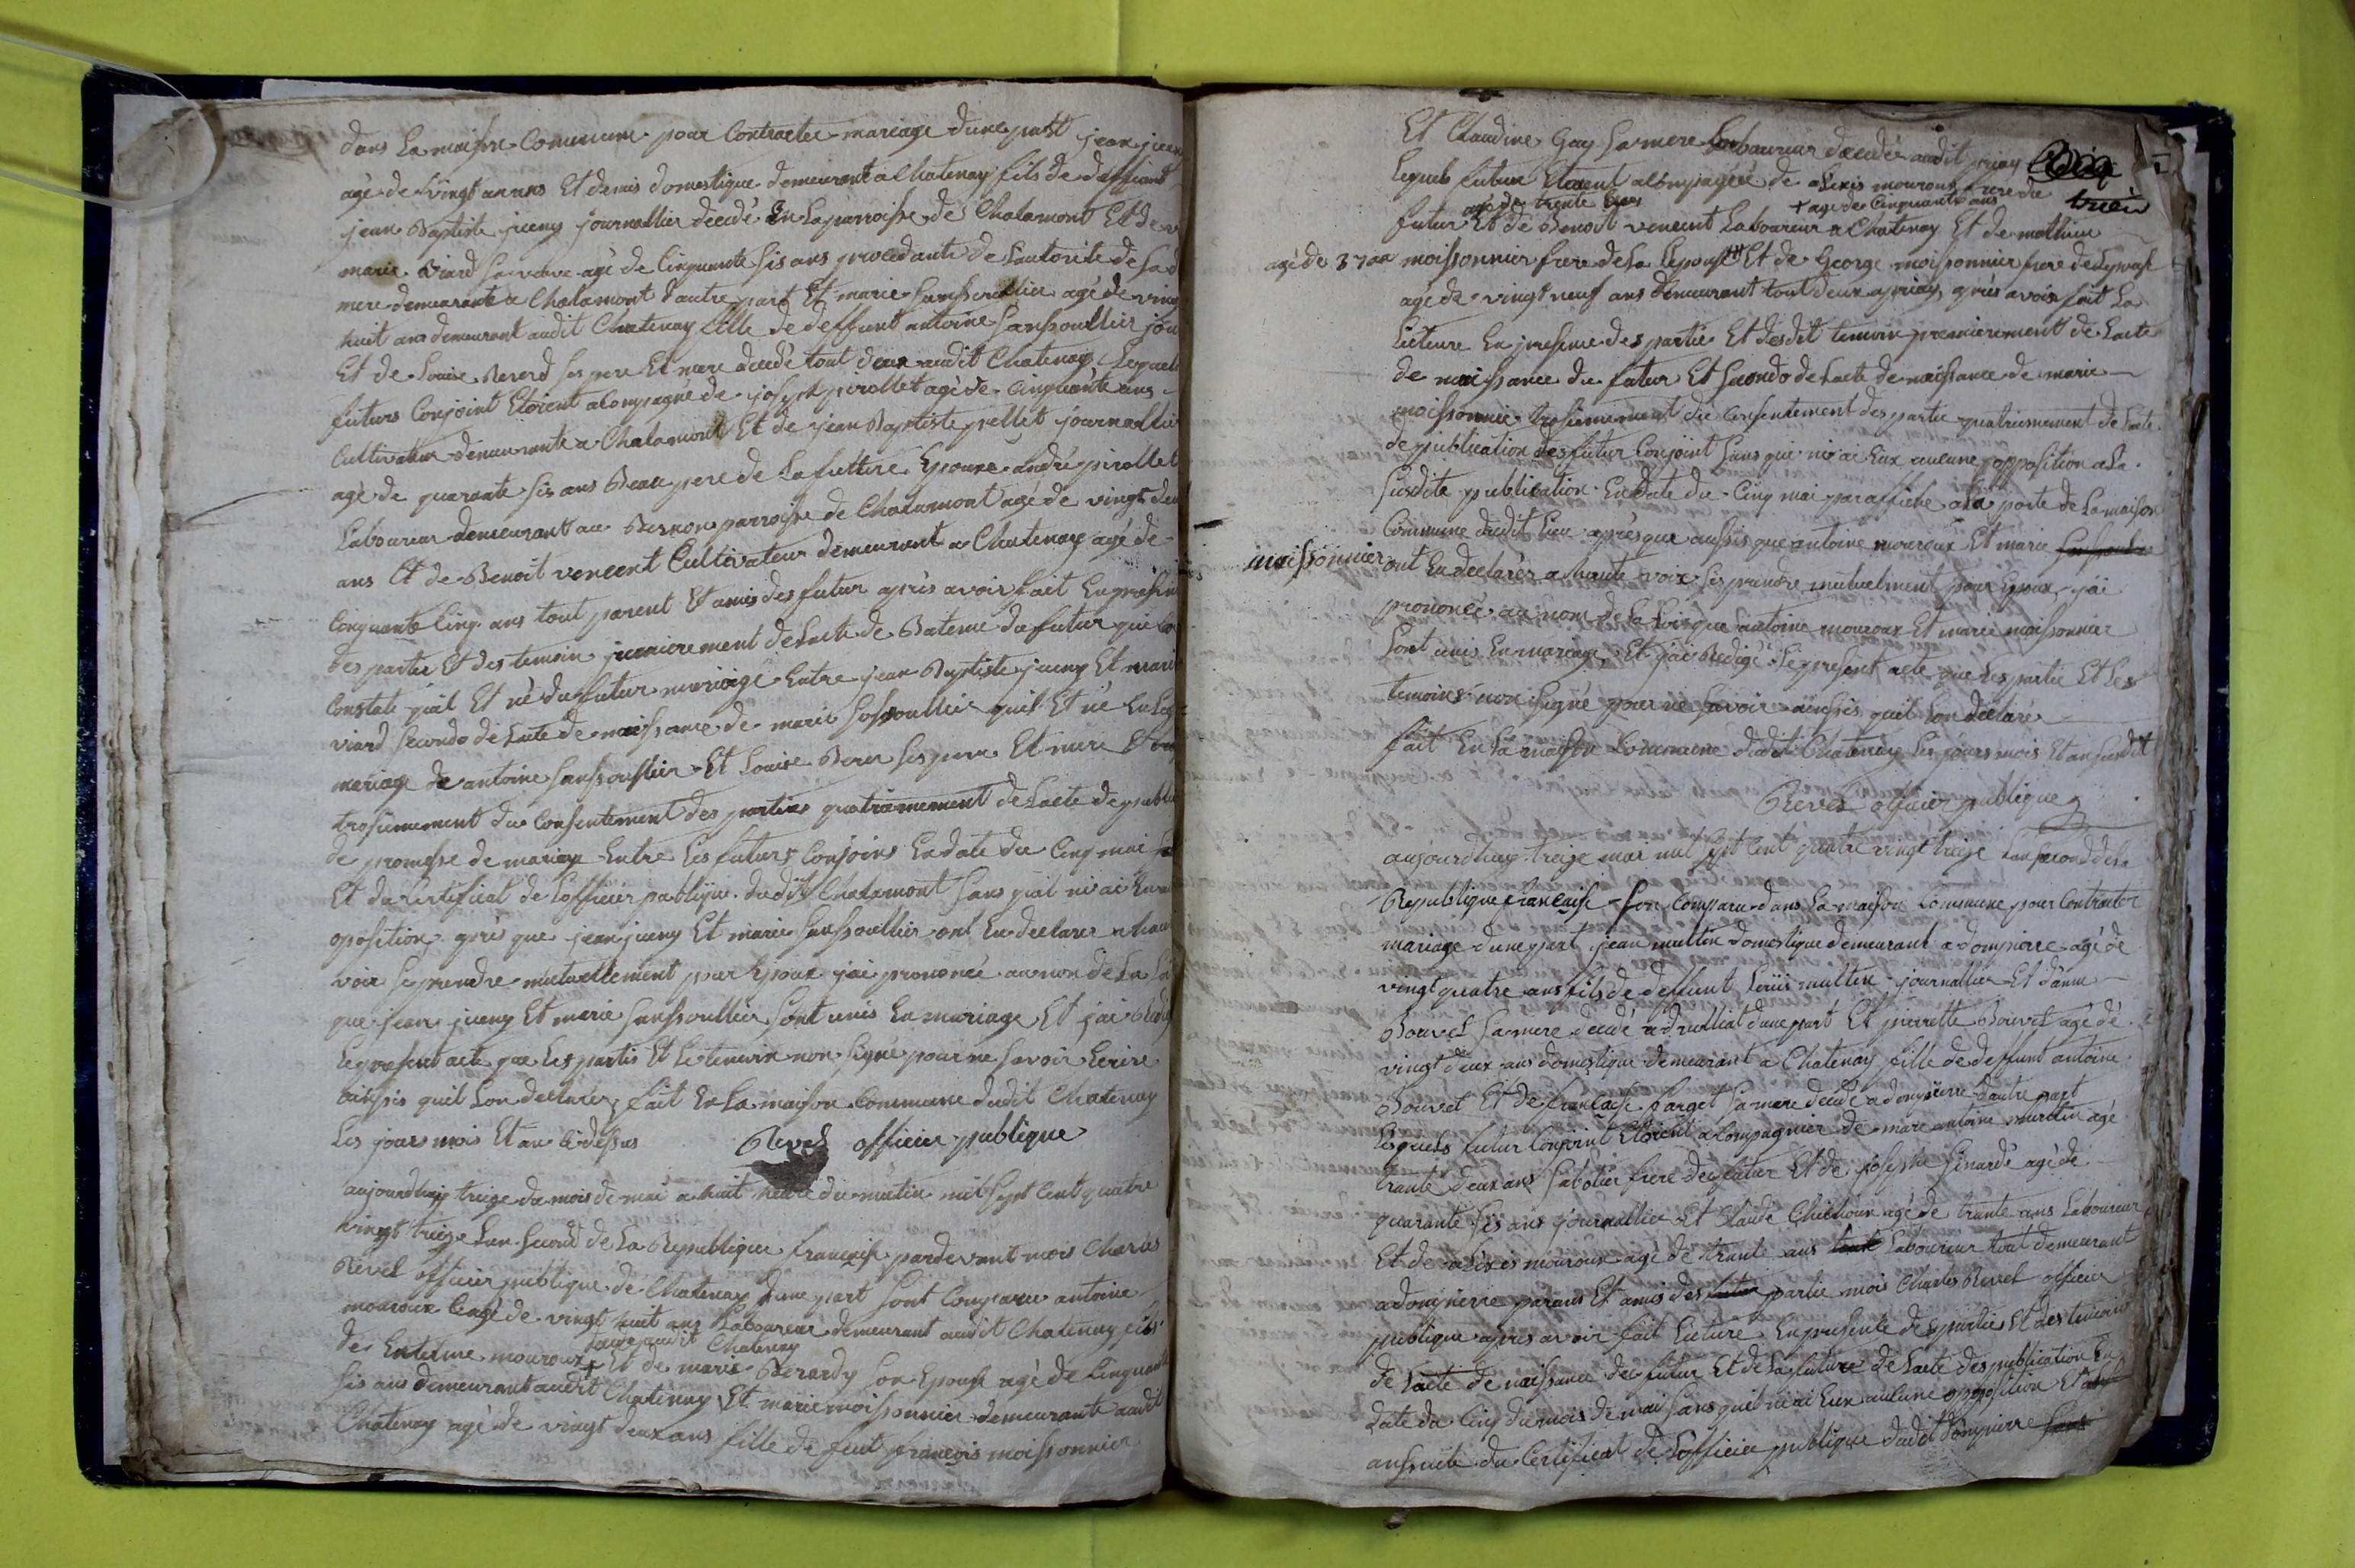 dans La maisne Commune pour Contracter mariage dune part jean jueny
agé de vingt un ans Et demis domestique demeurant a Chatenay fils de deffunt
jean Baptiste jueny journallier decedé En La parroisse de Chalamont Et de
marie Viard sa veuve agé de Cinquante sis ans procedante de Lautorité de sa
mere demeurante a Chalamont dautre part Et marie sanssoullier agé de vingt
huit ans demeurant audit Chatenay fille de deffunt antoine sanssoullier jou
Et de Louise Rererd ses pere Et mere decedé tout deux audit Chatenay Lequels
futurs Conjoint Etoient acompagné de joseph pirollet agé de Cinquante ans
Cultivateur demeurante a Chalamont Et de jean Baptiste pellet journallier
agé de quarante sis ans Beau pere de La future Epouse andré pirollet
Laboureur demeurant au Besnon parroisse de Chalamont agé de vingt deu
ans Et de Benoit vencent Cultivateur demeurant a Chatenay agé de
Cinquante Cinq ans tout parent Et amis des futur après avoir fait En presen
des partie Et des temoin premierement de Lacte de Bateme du futur qui
Constate quil Et né du futur mariage Entre jean Baptiste jueny Et marie
viard secondo de Lacte de naissance de marie sossoullier quil Et né En Leg
mariage de antoine sanssoullier Et Louise Berer ses pere Et mere
trosiemement du Consentement des parties quatriemement de Lacte de publi
de promesse de mariage Entre Les futurs Conjoins En date du Cinq mai
Et du Certificat de Lofficier publique dudit Chalamont sans quil ni ai Eu
oposition près que jean jueny Et marie sanssoullier ont En declarer a haut
voix se prendre mutuellement pour Epoux jai prononcé au nom de La Loi
que jean jueny Et marie sanssoullier sont unis En mariage Et jai Redigé
Le present acte que Les partis Et Le temoin non signe pour ne savoir Ecrire
ainssis quil Lon declarer fait En La maison Commune dudit Chatenay
Les jours mois Et an Ci dessus Revel officier publique
aujourdhuy treize du mois de mai a huit heure du matin mil sept Cent quatre
vingt treize Lan second de La Republique françaisse pardevant mois Charles
Revel officier publique de Chatenay dune part sont Comparu antoine
mouroux Lagé de vingt huit ans Laboureur demeurant audit Chatenay fils
decedé audit Chatenay
de Enterme mouroux + Et de marie Berardy son Epouse agé de Cinquante
sis ans demeurant audit Chatenay Et marie moissonnier demeurante audit
Chatenay agé de vingt deux ans fille de feut françois moissonnier
Et Claudine Gay sa mere Laboureur decedé audit priay
Lequels futur Etoient acompagné de alexis mouroux frere du
agé de trente ans + agé de Cinquante ans
futur Et de Benoit vencent Laboureur a Chatenay Et de mathieu
agé de 37 an moissonnier frere de La Lepouse Et de George moissonnier frere de Lepouse
agé de vingt neuf ans demeurant tout deux a priay près avoir fait La
Lecteure En presence des partie Et desdit temoin premierement de Lacte
de naissance du futur Et secondo de Lacte de naissance de marie
moissonnier trosiemement du Consentement des partie quatriemement de Lacte
de publication des futur Conjoint sans que ni ai Eux aucune opposition a La
susdite publication En date du Cinq mai par affiche a La porte de La maison
Commune dudit Lieu après que aussis que antoine mouroux Et marie
moissonnier ont En declarér a haute voix se prendre mutuelment pour Epoux jai
prononcé au nom de La Loi que antoine mouroux Et marie moissonnier
sont unis En mariage Et jai Redigé Le present acte que Les partie Et Les
temoins non signé pour ne savoir ainssis quil Lon declaré
fait En La maison Commune dudit Chatenay Les jours mois Et an susdit
Revel officier publique
aujourdhuy treize mai mil sept Cent quatre vingt treize Lan second de La
Republique française son Comparu dans La maison Commune pour Contracter
mariage dune part jean multin domestique demeurant a dompierre agé de
vingt quatre ans fils de deffunt Louis multin journallier Et danne
Bouvet sa mere decedé a druilliat dune part Et pierrette Bouvet agé de
vingt deux ans domestique demeurant a Chatenay fille de deffunt antoine
Bouvet Et de françoise farget sa mere decedé a dompierre dautre part
Lesquels futur Conjoint Etoient acompagnier de marc antoine multin agé
trante deux ans sabotier frere des futur Et de joseph ginardé agé de
quarante sis ans journallier Et Claude Chichoux agé de trante ans Laboureur
Et de alexis mouroux agé de trante ans Laboureur tout demeurant
a dompierre parans Et amis des partie mois Charles Revel officier
publique apres avoir fait Lecture En presente des parties Et des temoins
de Lacte de naissance des futur Et de La future de Lacte des publication En
date du Cinq du mois de mai sans quil ni ai Eux aucune opposition Et
ansuite du Certificat de Lofficier publique dudit dompierre